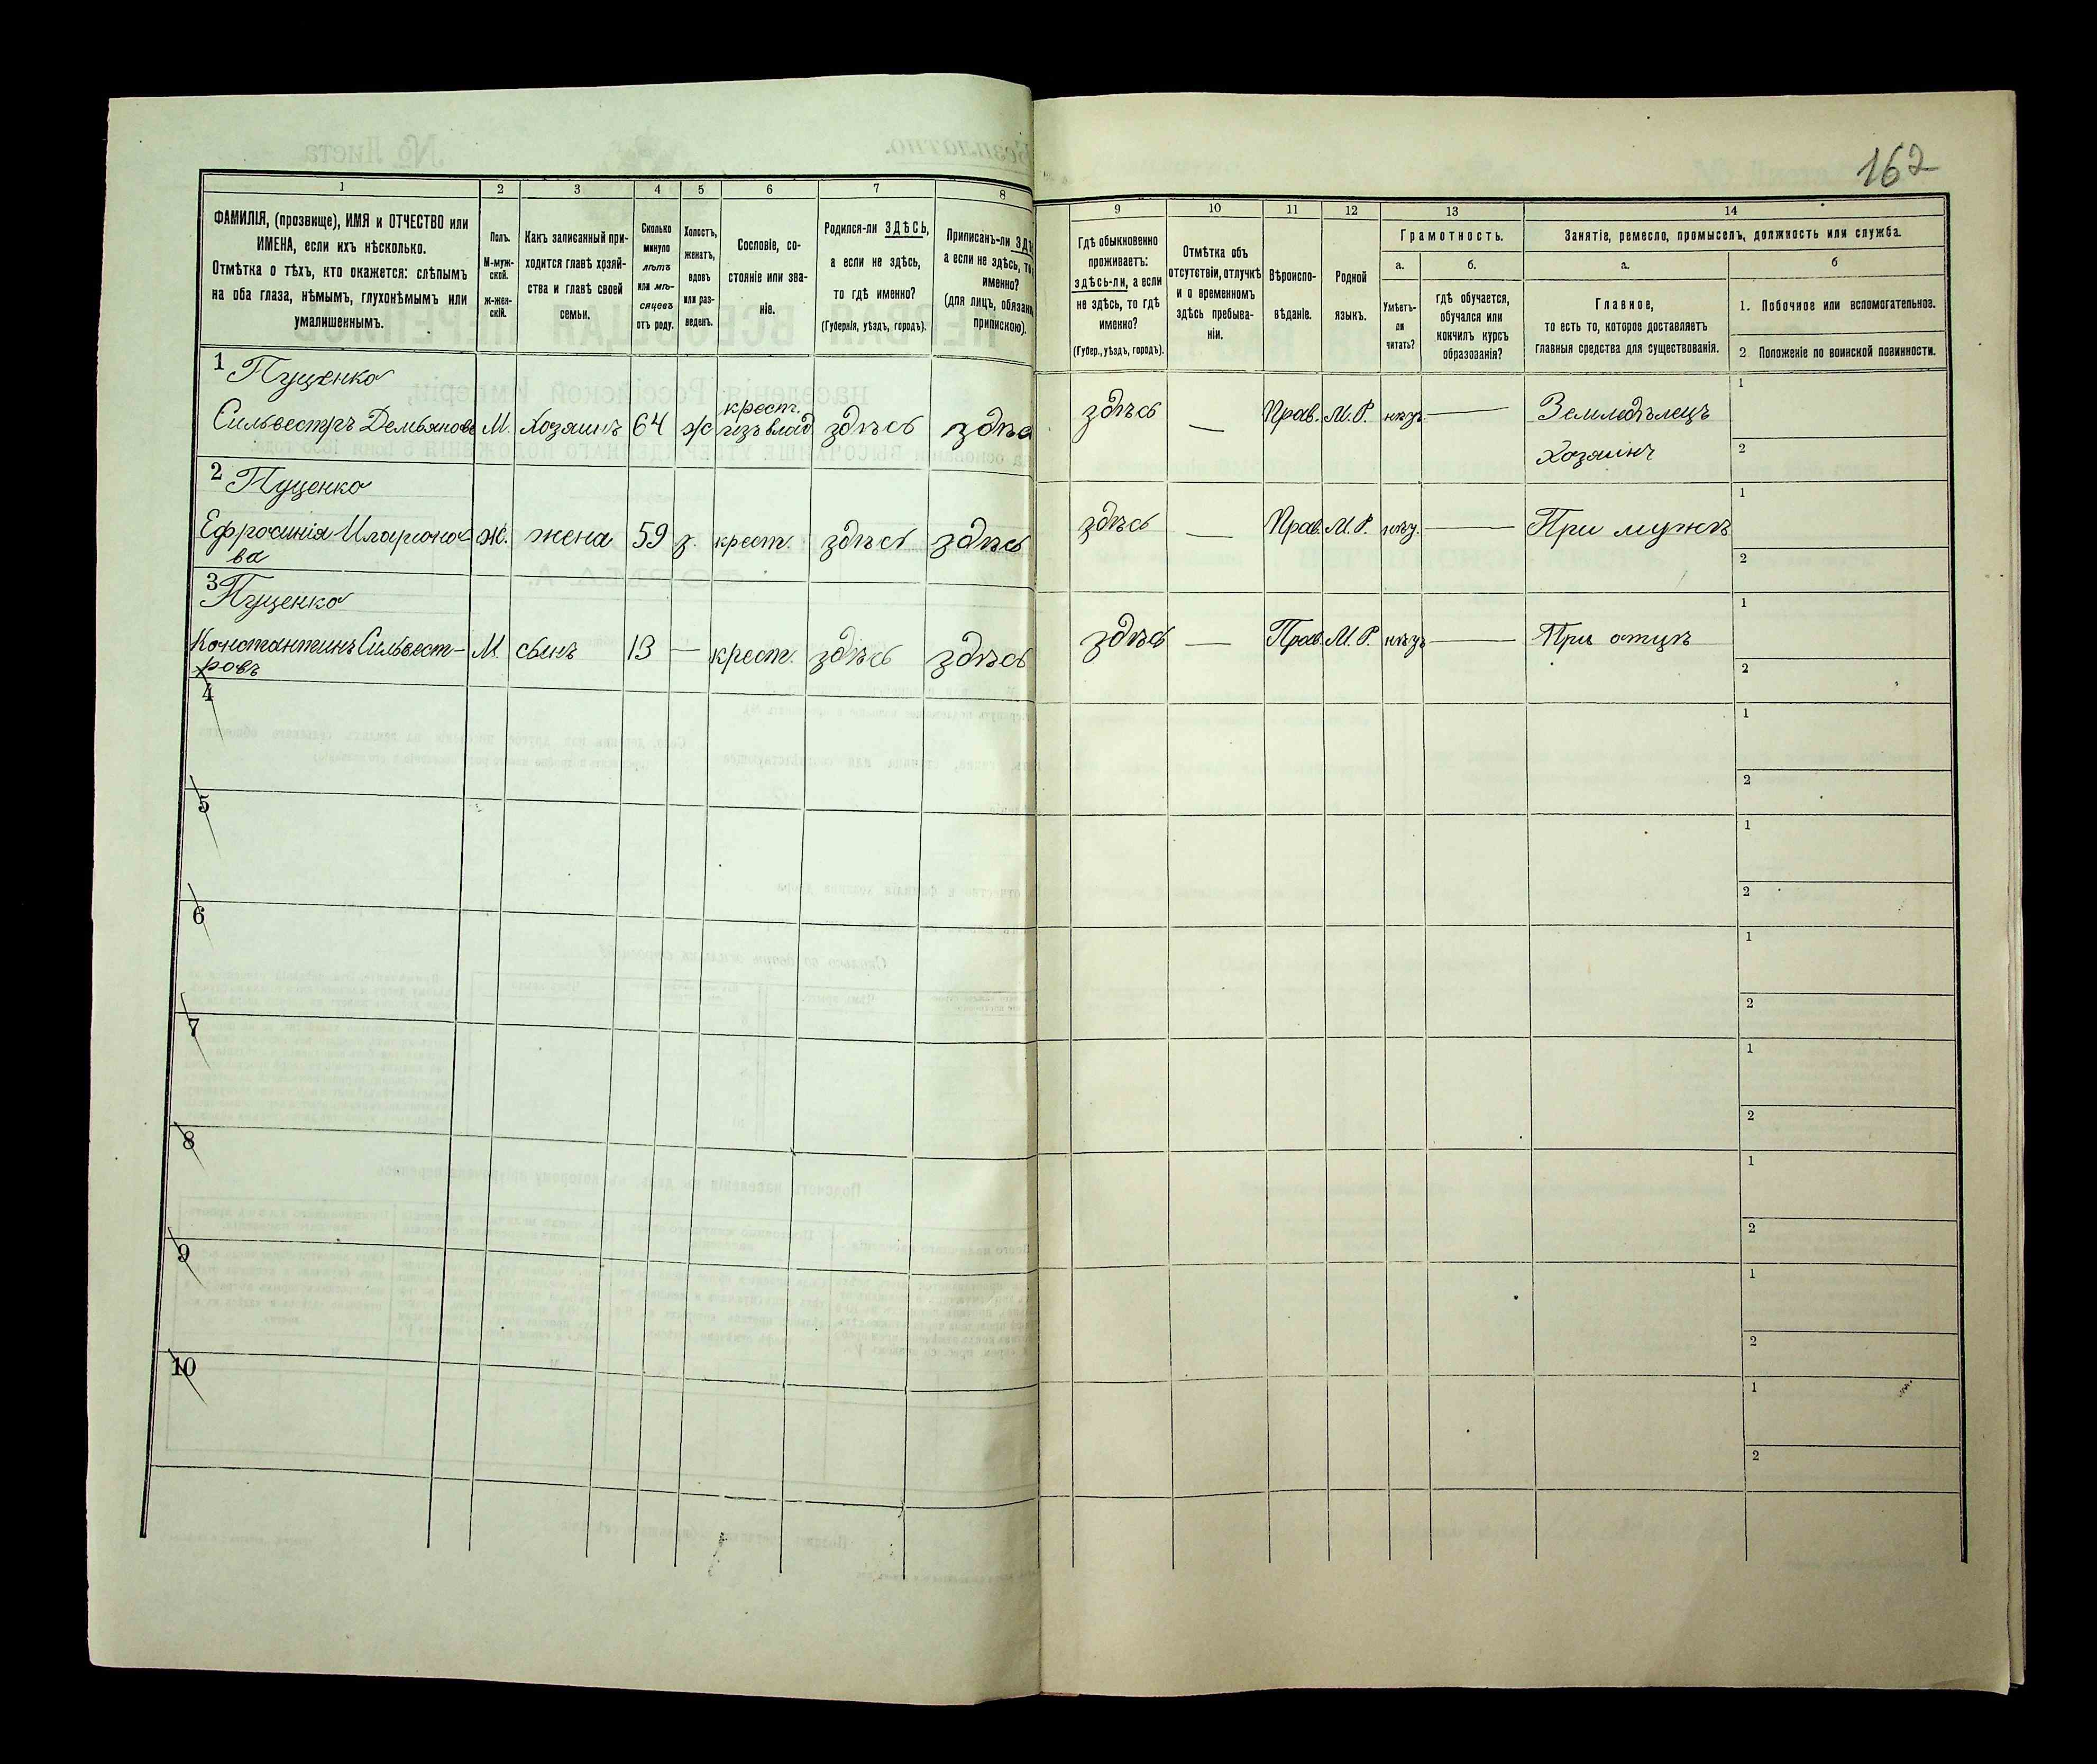 162
1
2
3
4
5
6
7
8
ФАМИЛІЯ, (прозвище), ИМЯ и ОТЧЕСТВО или
ИМЕНА, если ихъ нѣсколько.
Отмѣтка о тѣхъ, кто окажется: слѣпымъ
на оба глаза, нѣмымъ, глухонѣмымъ или
умалишеннымъ.
Полъ.
М-муж-
ской.
ж-жен-
скій.
Какъ записанный при-
ходится главѣ хозяй-
ства и главѣ своей
семьи.
Сколько
минуло
лѣтъ
или мѣ-
сяцевъ
отъ роду.
Холостъ,
женатъ,
вдовъ
или раз-
веденъ.
Сословіе, со-
стояніе или зва-
ніе.
Родился-ли ЗДѢСЬ,
а если не здѣсь,
то гдѣ именно?
(Губернія, уѣздъ, городъ).
Приписанъ-ли ЗДѢ
а если не здѣсь, то
именно?
(для лицъ, обязан
припискою).
9
10
11
12
13
14
Гдѣ обыкновенно
проживаетъ:
здѣсь-ли, а если
не здѣсь, то гдѣ
именно?
(Губер., уѣздъ, городъ).
Отмѣтка объ
отсутствіи, отлучкѣ
и о временномъ
здѣсь пребыва-
ніи.
Вѣроиспо-
вѣданіе.
Родной
языкъ.
Грамотность.
а.
б.
Умѣетъ-
ли
читать?
гдѣ обучается,
обучался или
кончилъ курсъ
образованія?
Занятіе, ремесло, промыселъ, должность или служба.
а.
б
Главное,
то есть то, которое доставляетъ
главныя средства для существованія.
1. Побочное или вспомогательное.
2 Положеніе по воинской повинности.
1 Пуценко
Сильвестръ Демьяновъ М. Хозяинъ 64 ж крест. изъ влад здѣсь здѣс здѣсь — Прав. М. Р. нѣтъ — Земледѣлецъ
Хозяинъ
1
2
2 Пуценко
Ефросинія Иларионо ж. жена 59 з. крест. здѣсь здѣсь здѣсь — Прав. М. Р. нѣт. — При мужѣ
ва
1
2
3 Пуценко
Константинъ Сильвест- М. сынъ 13 — крест. здѣсь здѣсь здѣсь — Прав. М. Р. нѣтъ — При отцѣ
ровъ
1
2
4
1
2
5
1
2
6
1
2
7
1
2
8
1
2
9
1
2
10
1
2